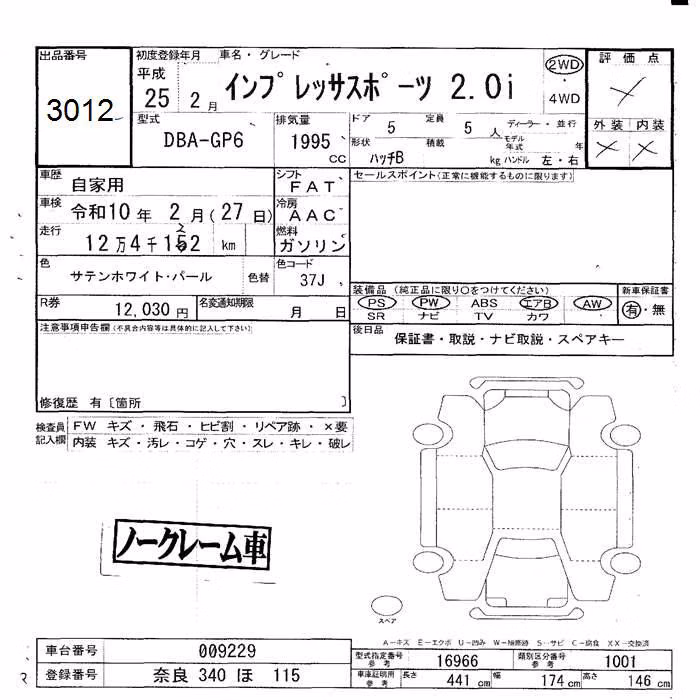 出品番号
3012
初度登録年月
平成
25 2月
車名・グレード
インプレッサスポーツ 2.0i
2WD
4WD
評価点
外装 内装
型式
DBA-GP6
排気量
1995
CC
ドア
5
定員
5 人
ディーラー・並行
モデル年式 年
形状
ハッチB
積載
kg
ハンドル 左・右
車歴
自家用
シフト
FAT
セールスポイント(正常に機能するものに限ります)
車検
令和10年 2月(27日)
冷房
AAC
走行
12万4千152 km
燃料
ガソリン
色
サテンホワイト・パール
色替
色コード
37J
装備品 (純正品に限り○をつけてください)
PS PW ABS エアB AW
SR ナビ TV カワ
新車保証書
有・無
R券
12,030円
名変通知期限
月 日
後日品
保証書・取説・ナビ取説・スペアキー
注意事項申告欄(不具合内容等は具体的に記入して下さい)
修復歴 有〔箇所 〕
検査員記入欄
FW キズ・飛石・ヒビ割・リペア跡・×要
内装 キズ・汚レ・コゲ・穴・スレ・キレ・破レ
ノークレーム車
スペア
A-キズ E-エクボ U-凹み W-補修跡 S-サビ C-腐食 XX-交換済
車台番号
009229
登録番号
奈良 340 ほ 115
型式指定番号 参考
16966
類別区分番号 参考
1001
車庫証明用 参考
長さ 441 cm
幅 174 cm
高さ 146 cm
R